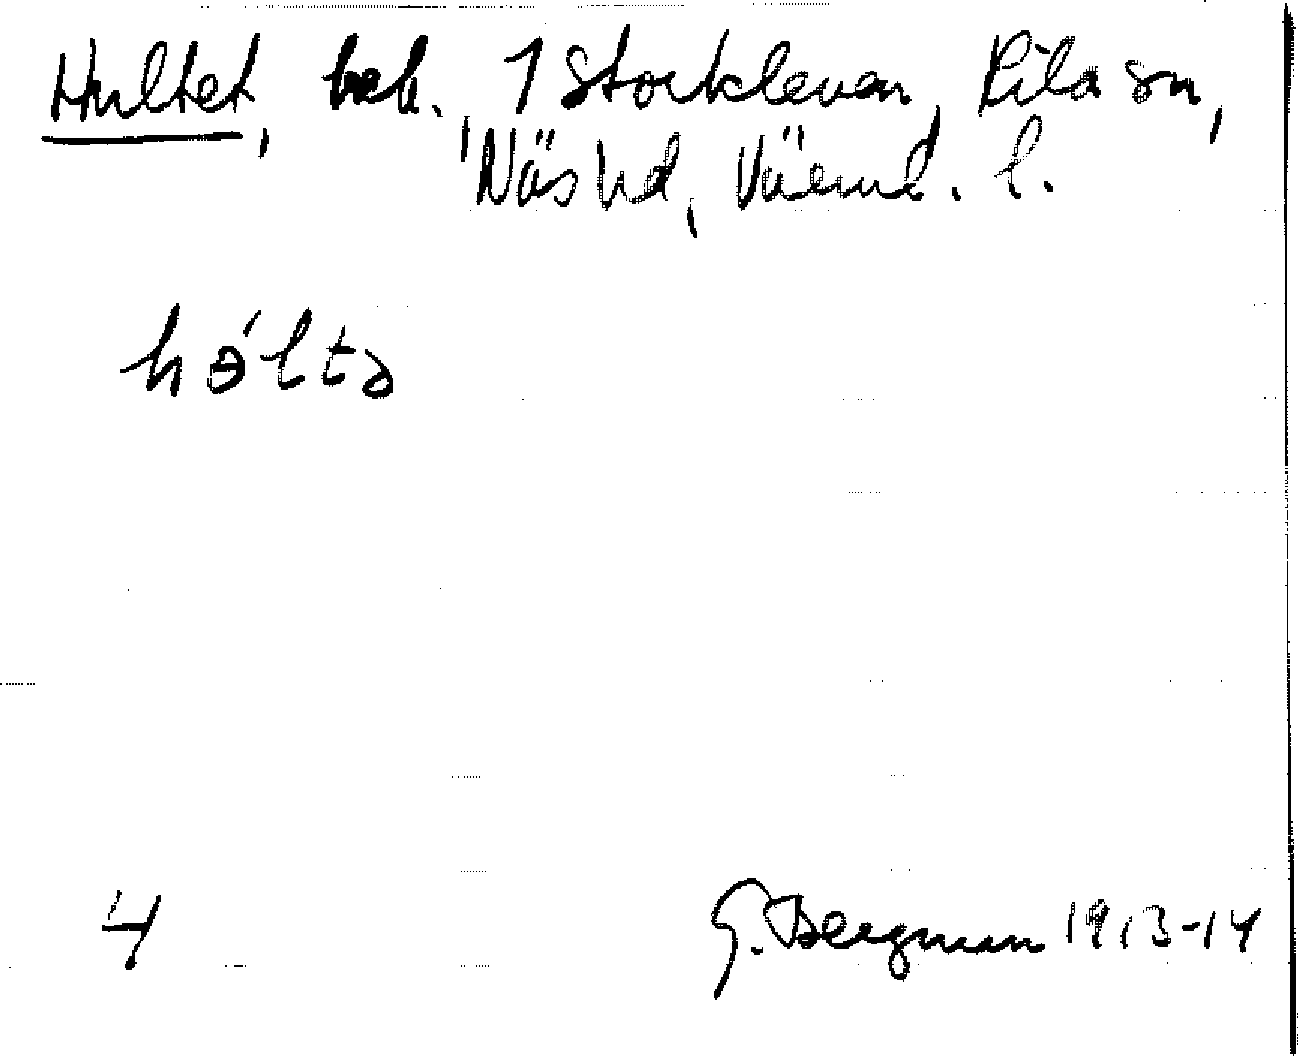 Hultet, beb. 1 Storkleven, Kila sn,
Näs hd, Värml. l.
hə́ltə
4
G. Bergman 1913-14